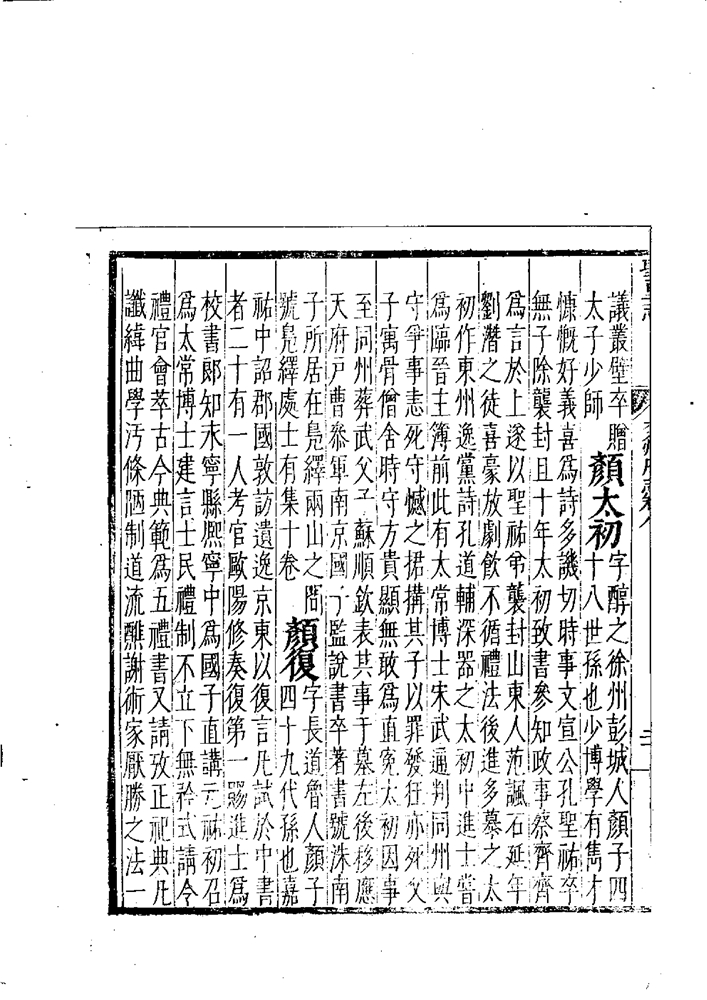 議叢壁卒贈 顏太初 字醇之徐州彭城人顏子四
太子少師 十八世孫也少博學有雋才
慷慨好義喜爲詩多譏切時事文宣公孔聖祐卒
無子除襲封且十年太初致書參知政事蔡齊齊
爲言於上遂以聖祐弟襲封山東人范諷石延年
劉潛之徒喜豪放劇飲不循禮法後進多慕之太
初作東州逸黨詩孔道輔深器之太初中進士嘗
爲臨晉主簿前此有太常博士宋武通判同州與
守爭事恚死守憾之捃摭其子以罪發狂亦死父
子寓骨僧舍時守方貴顯無敢爲直冤太初因事
至同州葬武父子 蘇順欽表其事于墓左後移應
天府戶曹參軍南京國子監說書卒著書號洙南
子所居在鳧繹兩山之間 顏復 字長道魯人顏子
號鳧繹處士有集十卷 四十九代孫也嘉
祐中詔郡國敦訪遺逸京東以復言凡試於中書
者二十有一人考官歐陽修奏復第一賜進士爲
校書郎知永寧縣熙寧中爲國子直講元祐初召
爲太常博士建言士民禮制不立下無矜式請令
禮官會萃古今典範爲五禮書又請攷正祀典凡
讖緯曲學汚條陋制道流醮謝術家厭勝之法一